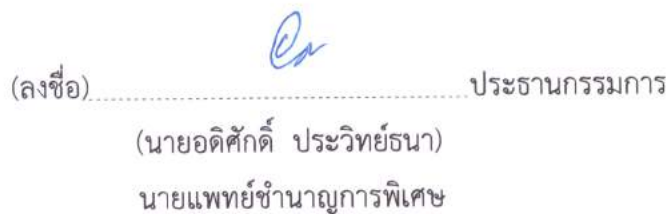 (ลงชื่อ)........................................................ประธานกรรมการ
(นายอดิศักดิ์ ประวิทย์ธนา)
นายแพทย์ชำนาญการพิเศษ